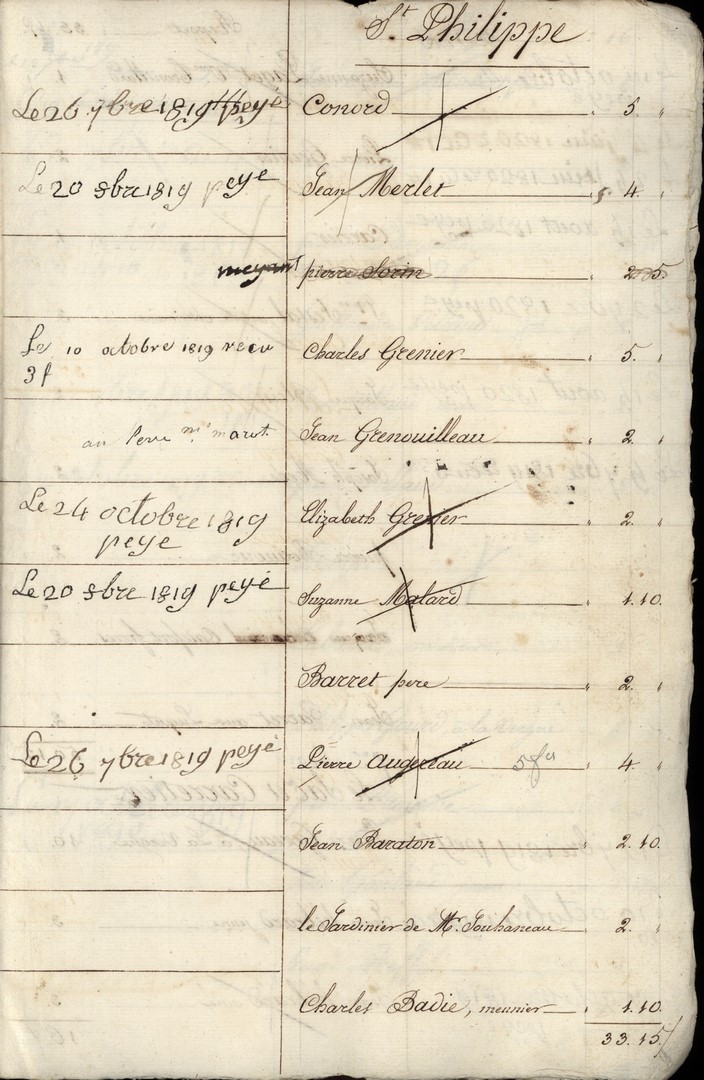 St Philippe
Le 26 7bre 1819 payé Conord 5 "
Le 20 8bre 1819 peyé Jean Merlet 4 "
pierre Sorin
Le 10 octobre 1819 recu Charles Grenier " 5 "
3f
au Jean Grenouilleau " 2 "
Le 24 octobre 1819 Elizabeth Grenier " 2 "
peye
Le 20 8bre 1819 peyé Suzanne Malard " 1.10
Barret pere " 2 "
Le 26 7bre 1819 peyé Pierre Augereau 4 "
Jean Baraton " 2.10
le Jardinier de Mr. Jouhaneau " 2 "
Charles Badie, meunier " 1.10
33.15